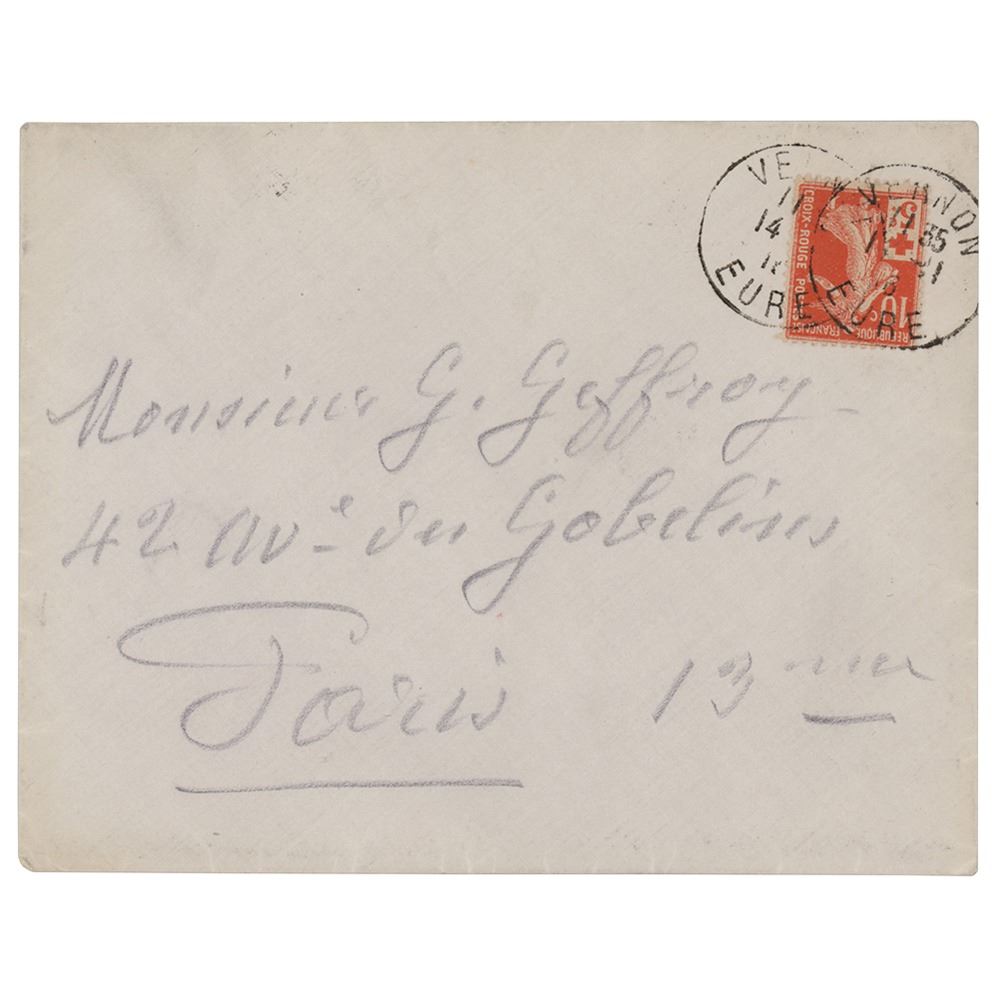 VERNON
EURE
VERNON
11 35
EURE
CROIX-ROUGE
5
10 c
REPUBLIQUE FRANÇAISE
Monsieur G. Geffroy
42 avᵉ des Gobelins
Paris 13me